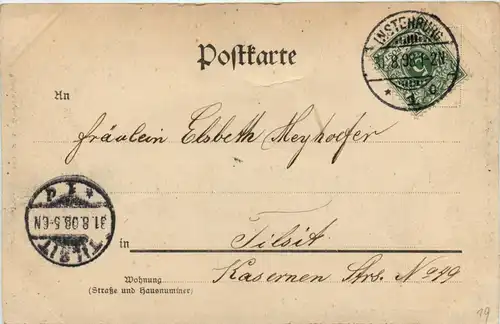 INSTERBURG
31.8.98.1-2N
* 1 c
Postkarte
An
Fräulein Elsbeth Meyhoefer
TILSIT
31.8.98.5-6N
in Tilsit
Wohnung
(Straße und Hausnummer)
Kasernen Strs. No
19